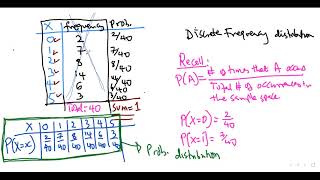 X frequency Prob.
0 2 2/40
1 7 7/40
2 8 8/40
3 14 14/40
4 6 6/40
5 3 3/40
Total=40 Sum=1
X 0 1 2 3 4 5
P(X=x) 2/40 7/40 8/40 14/40 6/40 3/40
Prob. distribution
Discrete Frequency distribution
Recall:
P(A) = # of times that A occurs / Total # of occurrences in the sample space
P(X=0) = 2/40
P(X=1) = 7/40